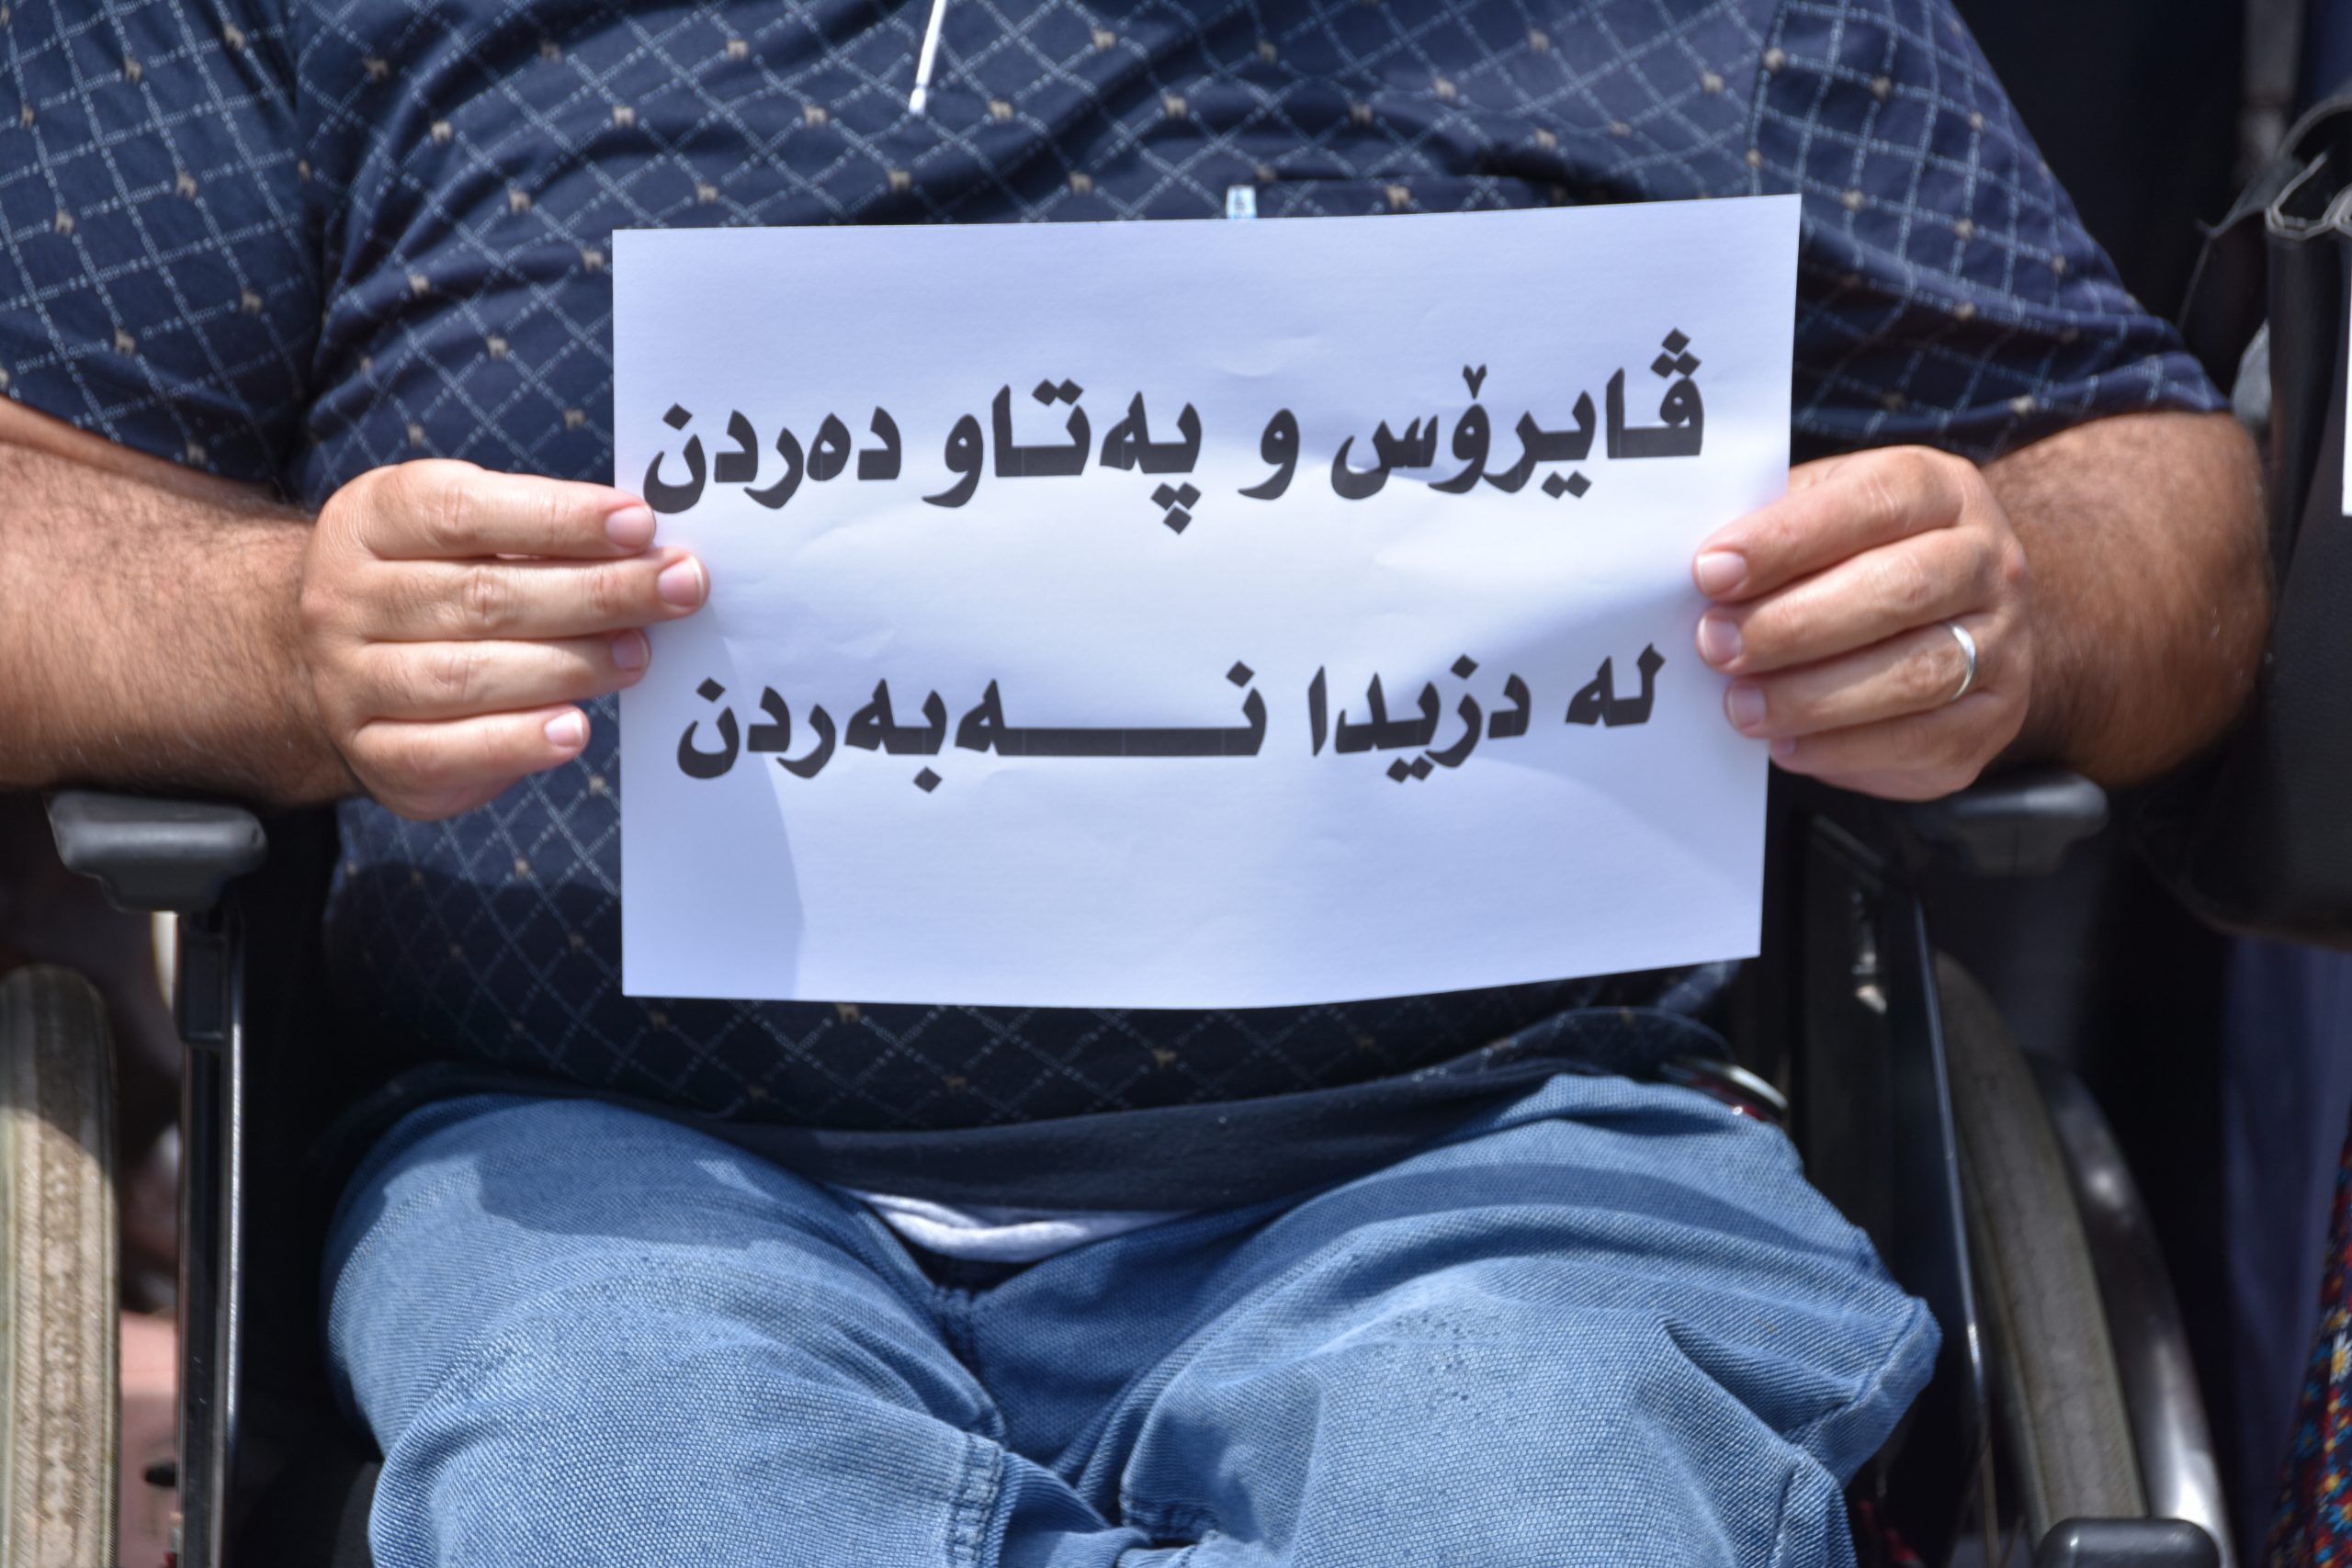 ڤایرۆس و پەتاو دەردن
لە دزیدا نـــــەبەردن